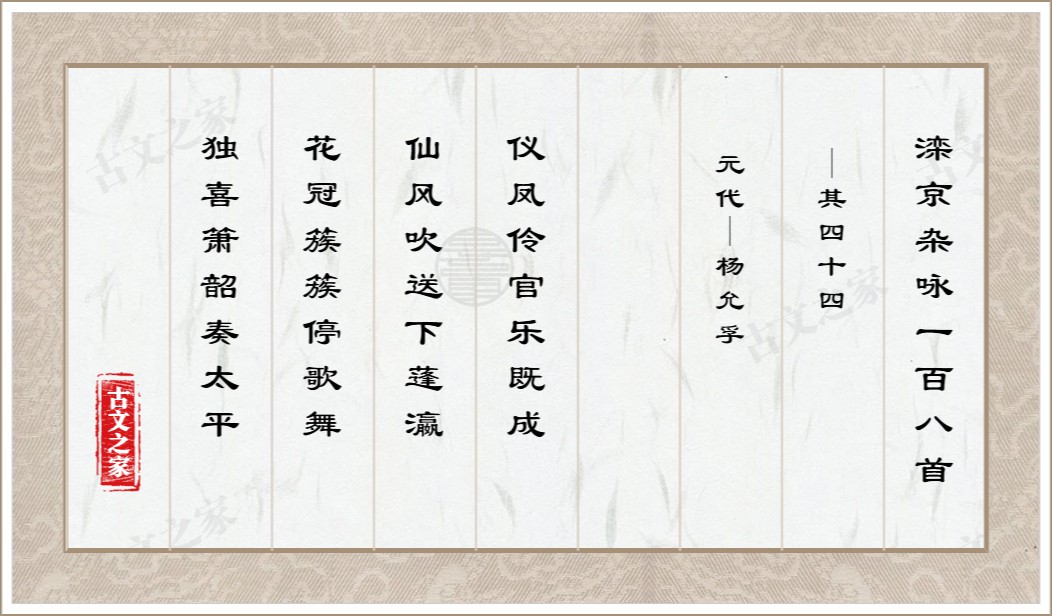 滦京杂咏一百八首
—其四十四
元代—杨允孚
仪凤伶官乐既成
仙风吹送下蓬瀛
花冠簇簇停歌舞
独喜箫韶奏太平
古文之家
古文之家
古文之家
古文之家